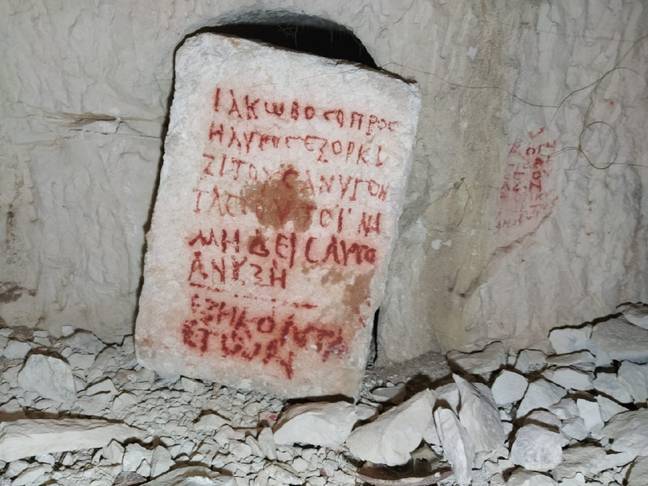 ΙΑΚωΒΟCΟΠΡΟC
ΗΛΥΤΟCΕΞΟΡΚΙ
ΖΙΤΟΥCΑΝΥΓΟΝ
ΤΑCΑΥΤΟΙΝΑ
ΜΗΔΕΙCΑΥΤΟ
ΑΝΥΞΗ
ΕΞΗΚΟΝΤΑ
ΕΤωΝ